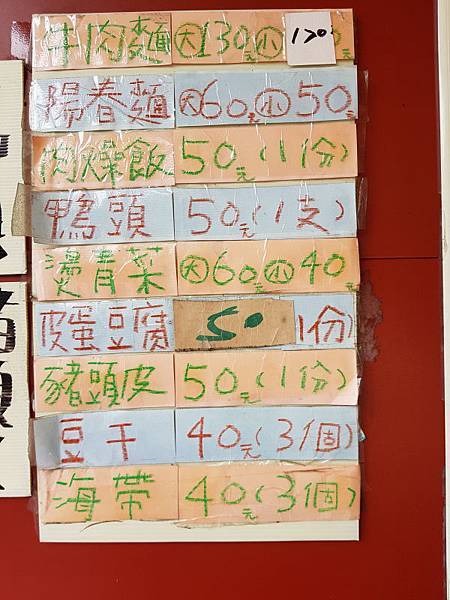 牛肉麵 大130 小 120元
陽春麵 大60元 小50元
肉燥飯 50元(1份)
鴨頭 50元(1支)
燙青菜 大60元 小40元
皮蛋豆腐 50 1份)
豬頭皮 50元(1份)
豆干 40元(3個)
海帶 40元(3個)